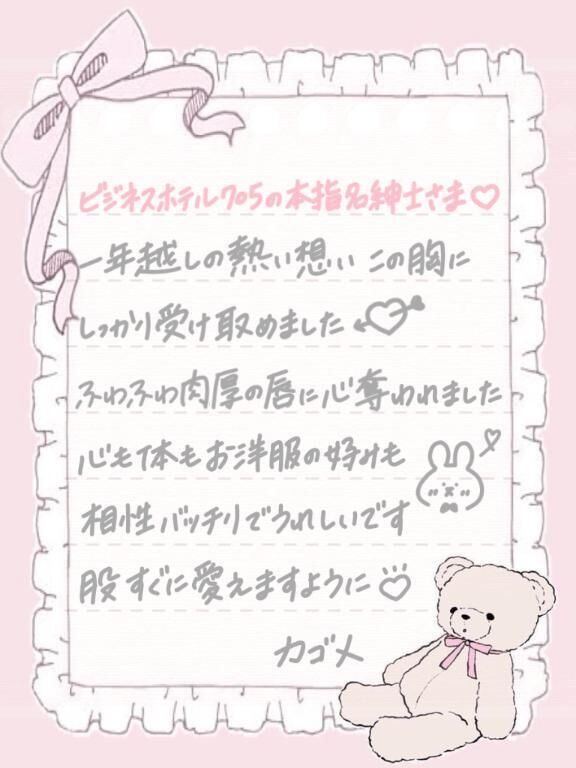 ビジネスホテル705の本指名紳士さま♡
一年越しの熱い想い この胸に
しっかり受け取めました
ふわふわ肉厚の唇に心奪われました
心も体もお洋服の好みも
相性バッチリでうれしいです
股すぐに愛えますように♡
カゴメ